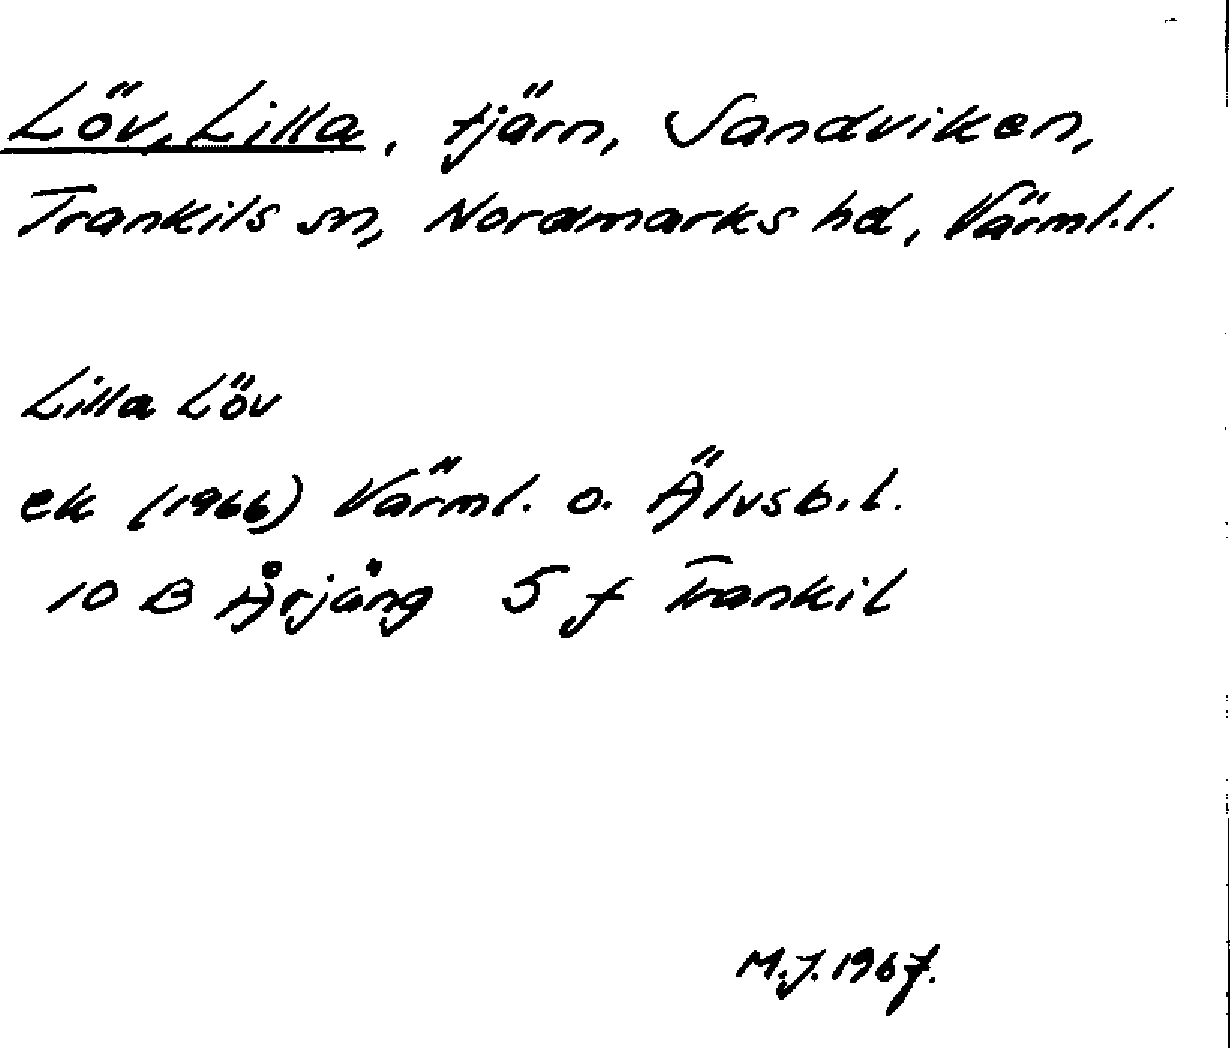 Löv, Lilla, tjärn, Sandviken,
Trankils sn, Nordmarks hd, Värml.l.
Lilla Löv
ek (1966) Värml. o. Älvsb.l.
10 B Årjäng 5 f Trankil
M.J. 1967.